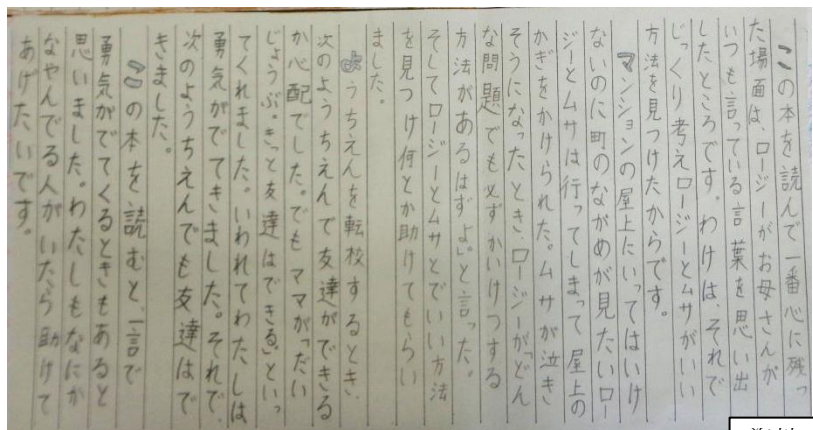 この本を読んで一番心に残っ
た場面は、ロージーがお母さんが
いつも言っている言葉を思い出
したところです。わけは、それで
じっくり考えロージーとムサがいい
方法を見つけたからです。
マンションの屋上にいってはいけ
ないのに町のながめが見たいロー
ジーとムサは行ってしまって屋上の
かぎをかけられた。ムサが泣き
そうになったとき、ロージーが「どん
な問題でも必ずかいけつする
方法があるはずよ。」と言った。
そしてロージーとムサとでいい方法
を見つけ何とか助けてもらい
ました。
ようちえんを転校するとき、
次のようちえんで友達ができる
か心配でした。でもママが「だい
じょうぶ。きっと友達はできる」といっ
てくれました。いわれてわたしは
勇気がでてきました。それで、
次のようちえんでも友達はで
きました。
この本を読むと、一言で
勇気がでてくるときもあると
思いました。わたしもなにか
なやんでる人がいたら助けて
あげたいです。